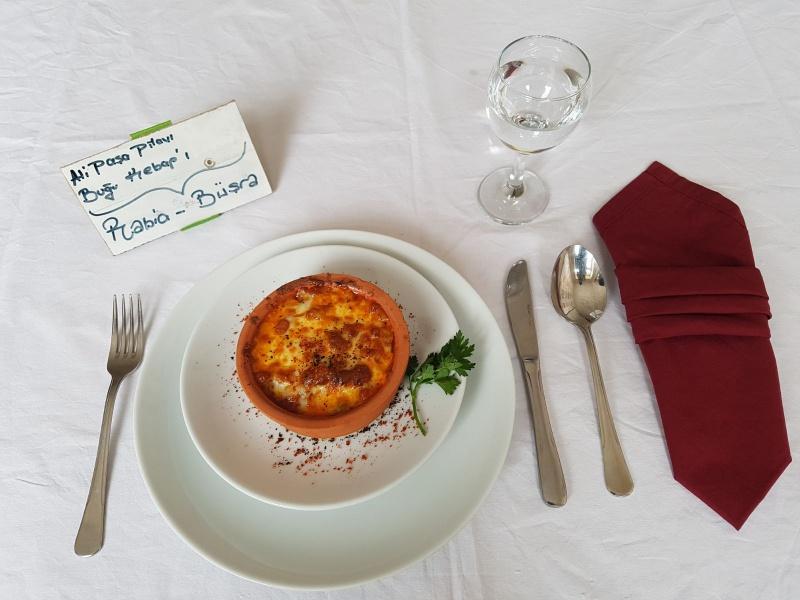 Ali Paşa Pilavı
Buğu Kebap'ı
Rabia - Büşra